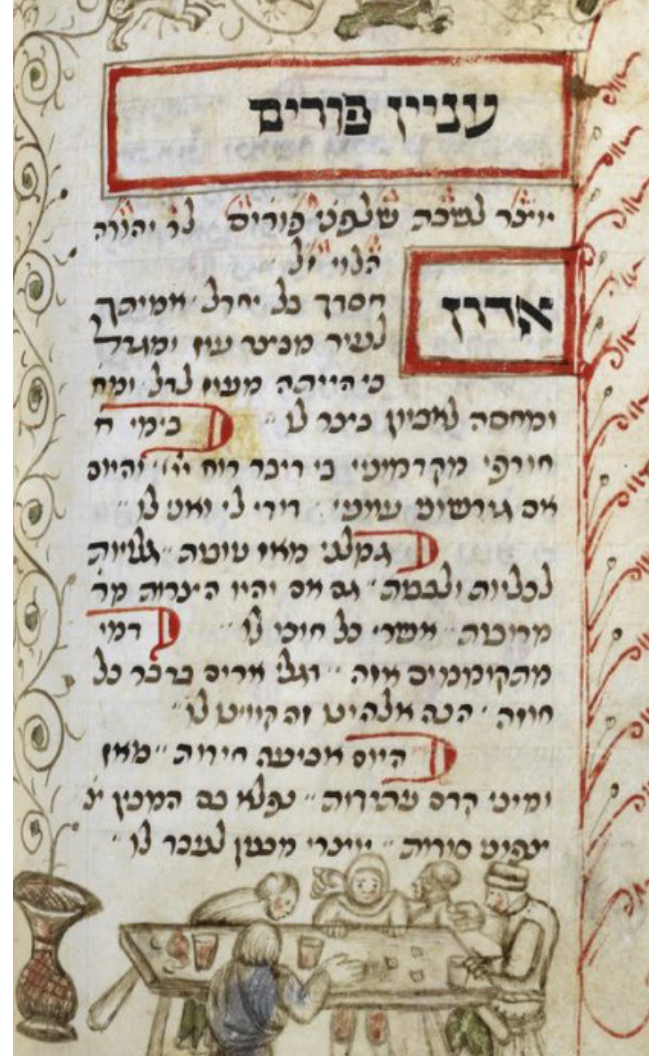 עניין פורים
יוצר לשבת שלפני פורים לר יהודה
הלוי זל
אדון
חסדך בל יחדל אמיתך
לעיר מבצר עוז ומגדל
כי הייתה מעוז לדל ומח
ומחסה לאביון בצר לו בימי ח
חורפי מקדמוני כי דיבר רוח ייי והיום
אם גורשתי עמוני דודי לי ואני לו
גמלני מאז טובות גלויות
לכליות ולבבות גם אם יהיו הצרות מר
מרובות אשרי כל חוכי לו רמי
מתקוממים אוה ורגלי ארים בדבר כל
חוזה הנה אלהינו זה קווינו לו
היום אביעה חידות מאז
ומיני קדם עתודות נפלא בם המבין
סודות מבטן לעבד לו